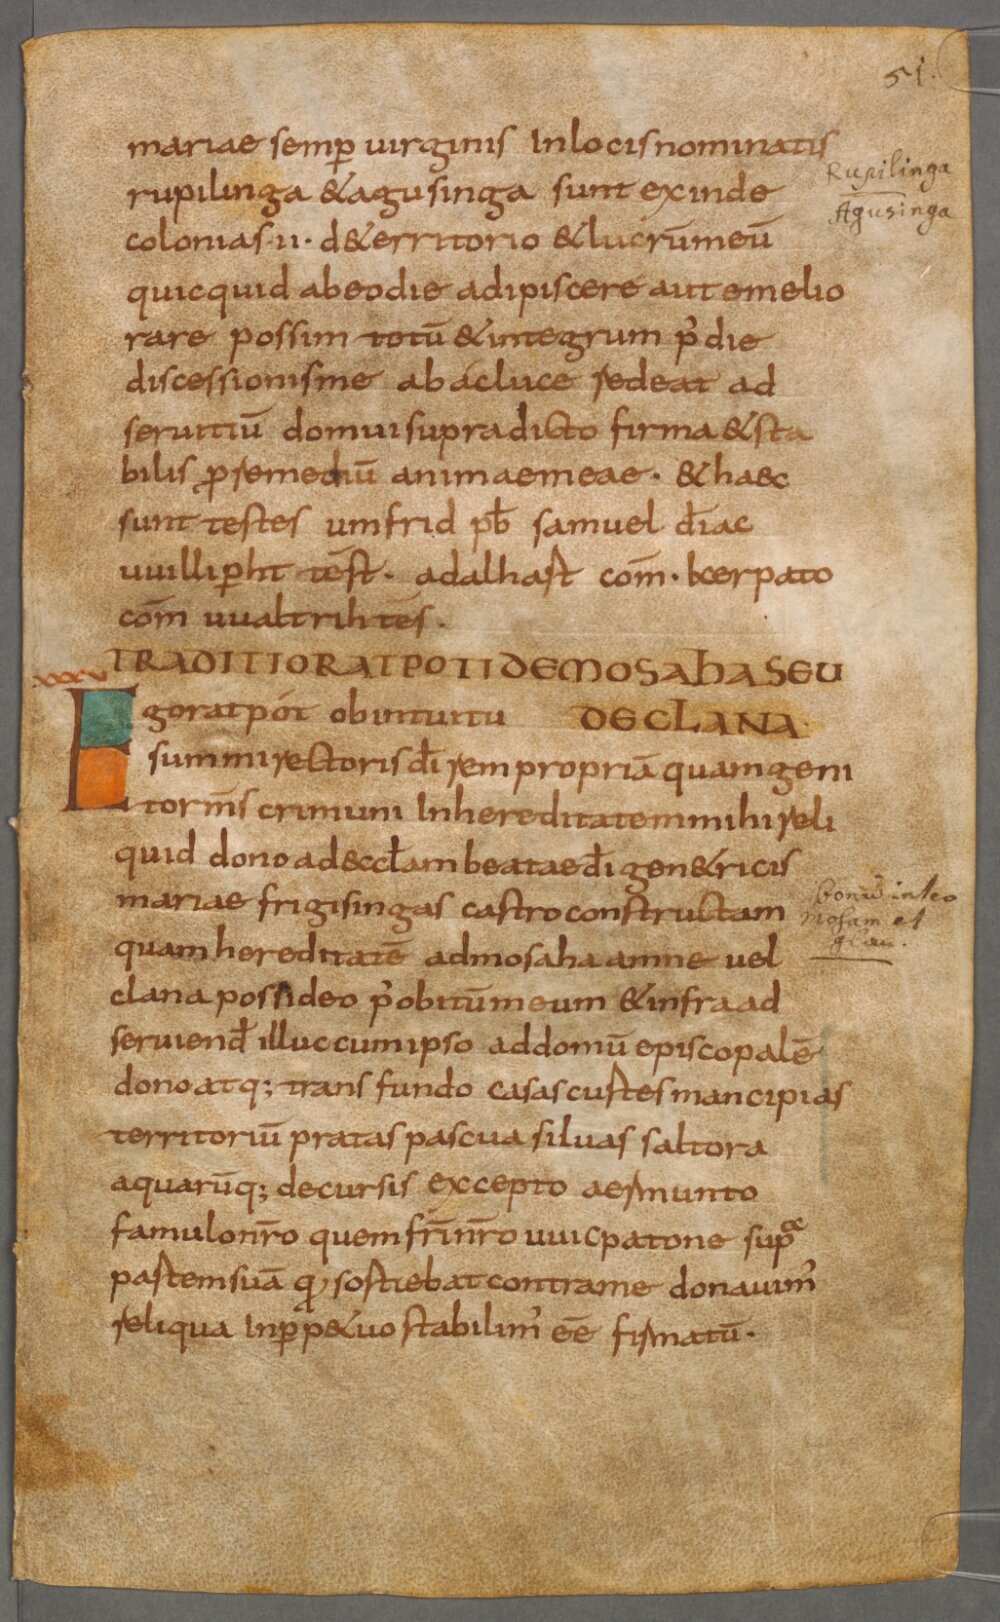 51.
mariae semꝑ uirginis Inlocisnominatis
Rupilinga
rupilinga &agusinga sunt exinde
Agusinga
colonias·11· d&erritorio &lucrūmeū
quicquid abeodie adipiscere aut emelio
rare possim totū &integrum p᾽ die
discessionisme abacluce redeat ad
seruitiū domuisupradicto firma &sta
bilis ꝓremediū animaemeae· &haec
sunt testes umfrid pb̄ samuel diac
uuilliꝑht test· adalhast com̄· kerpato
com̄ uualtrih tes̄·
TRADITIO RATPOTI DE MOSAHA SEU
xxxv
Egoratpót obintuitu DE CLANA
summirectoris dī rem propriā quamgeni
torm̄s crimuni Inhereditatemmihireli
quid donoad&ccl̄am beataedī gen&ricis
mariae frigisingas castroconstructam
quamhereditatē admosahaamne uel
clana possideo p᾽obitūmeum &infraad
seruiend̄ illuccumipso addomū episcopalē
donoatq; transfundo casascurtesmancipias
territoriū pratas pascua siluas saltora
aquarūq; decursis excepto aermunto
famulonr̄o quemfr̄inr̄o uuicpatone supᵃ
partemsuā ꝙ sortiebat contrame donauim᾽
reliqua Inꝑp&uo stabilim᾽ eē firmatū·